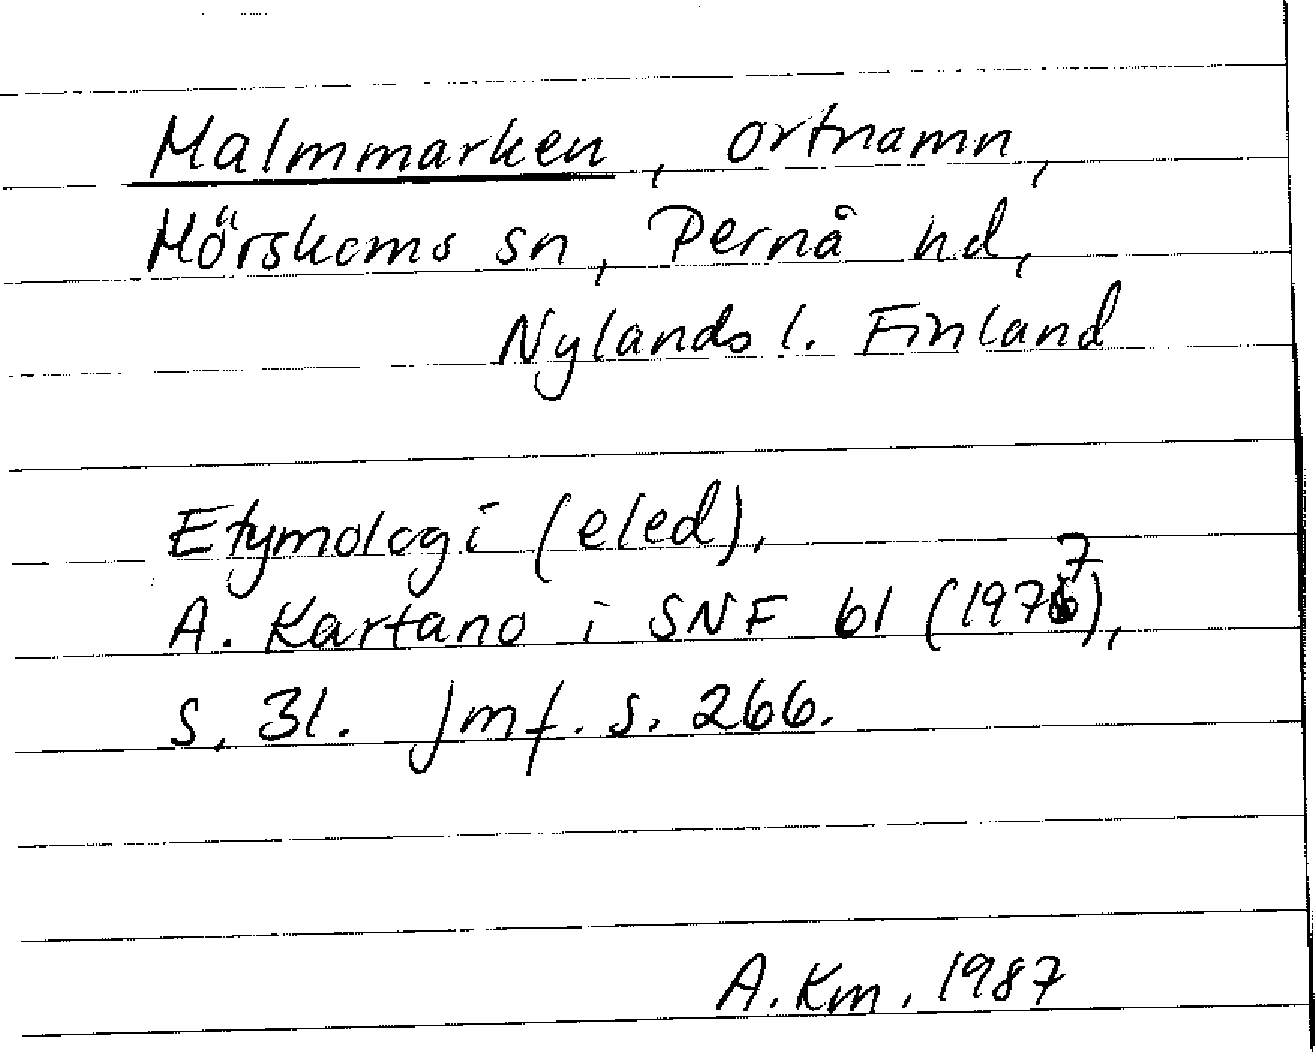 Malmmarken, ortnamn,
Mörskoms sn, Pernå hd,
Nylands l. Finland
Etymologi (eled),
A. Kartano i SNF 61 (1977),
s. 31. Jmf. s. 266.
A. Km. 1987